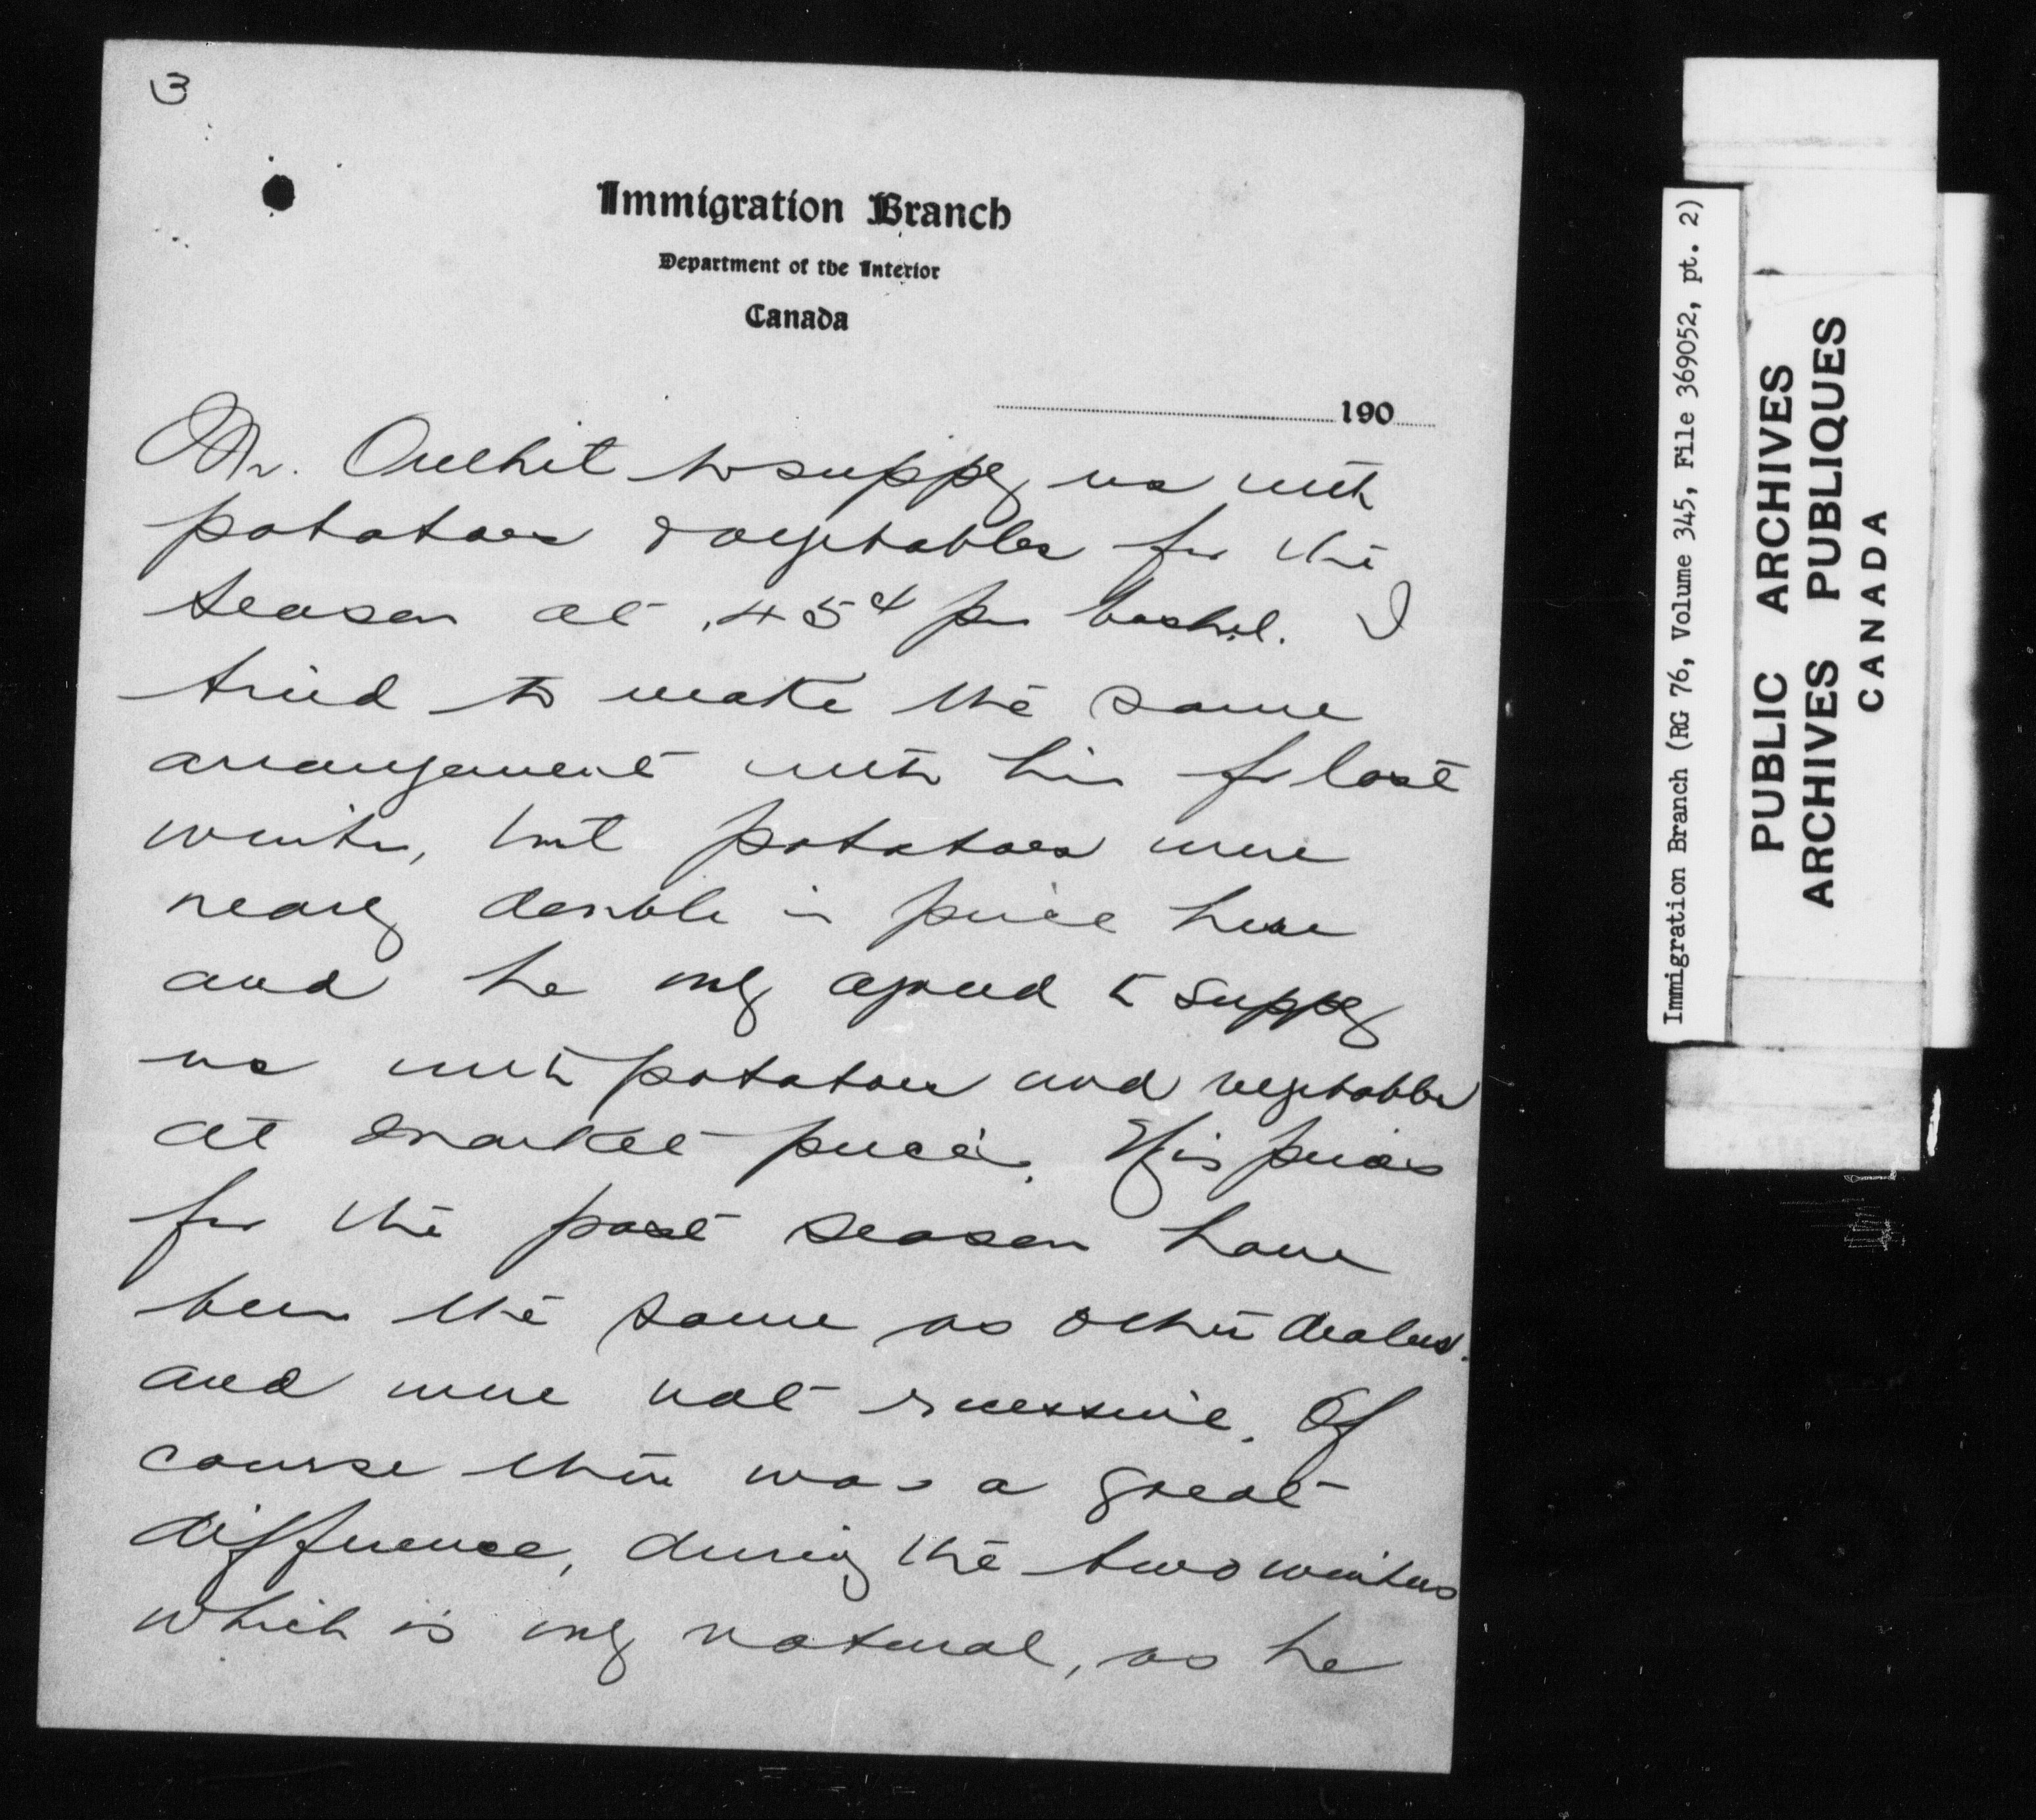 3
Immigration Branch
Department of the Interior
Canada
190
Mr. Oulhit to supply us with
potatoes & vegetables for the
season at .45¢ per bushel. I
tried to make the same
arrangement with him for last
winter, but potatoes were
nearly double in price here
and he only agreed to supply
us with potatoes and vegetables
at market price. His prices
for the past season have
been the same as other dealers.
and were not excessive. Of
course there was a great
difference, during the two winters
which is only natural, as he
Immigration Branch (RG 76, Volume 345, File 369052, pt. 2)
PUBLIC ARCHIVES
ARCHIVES PUBLIQUES
CANADA